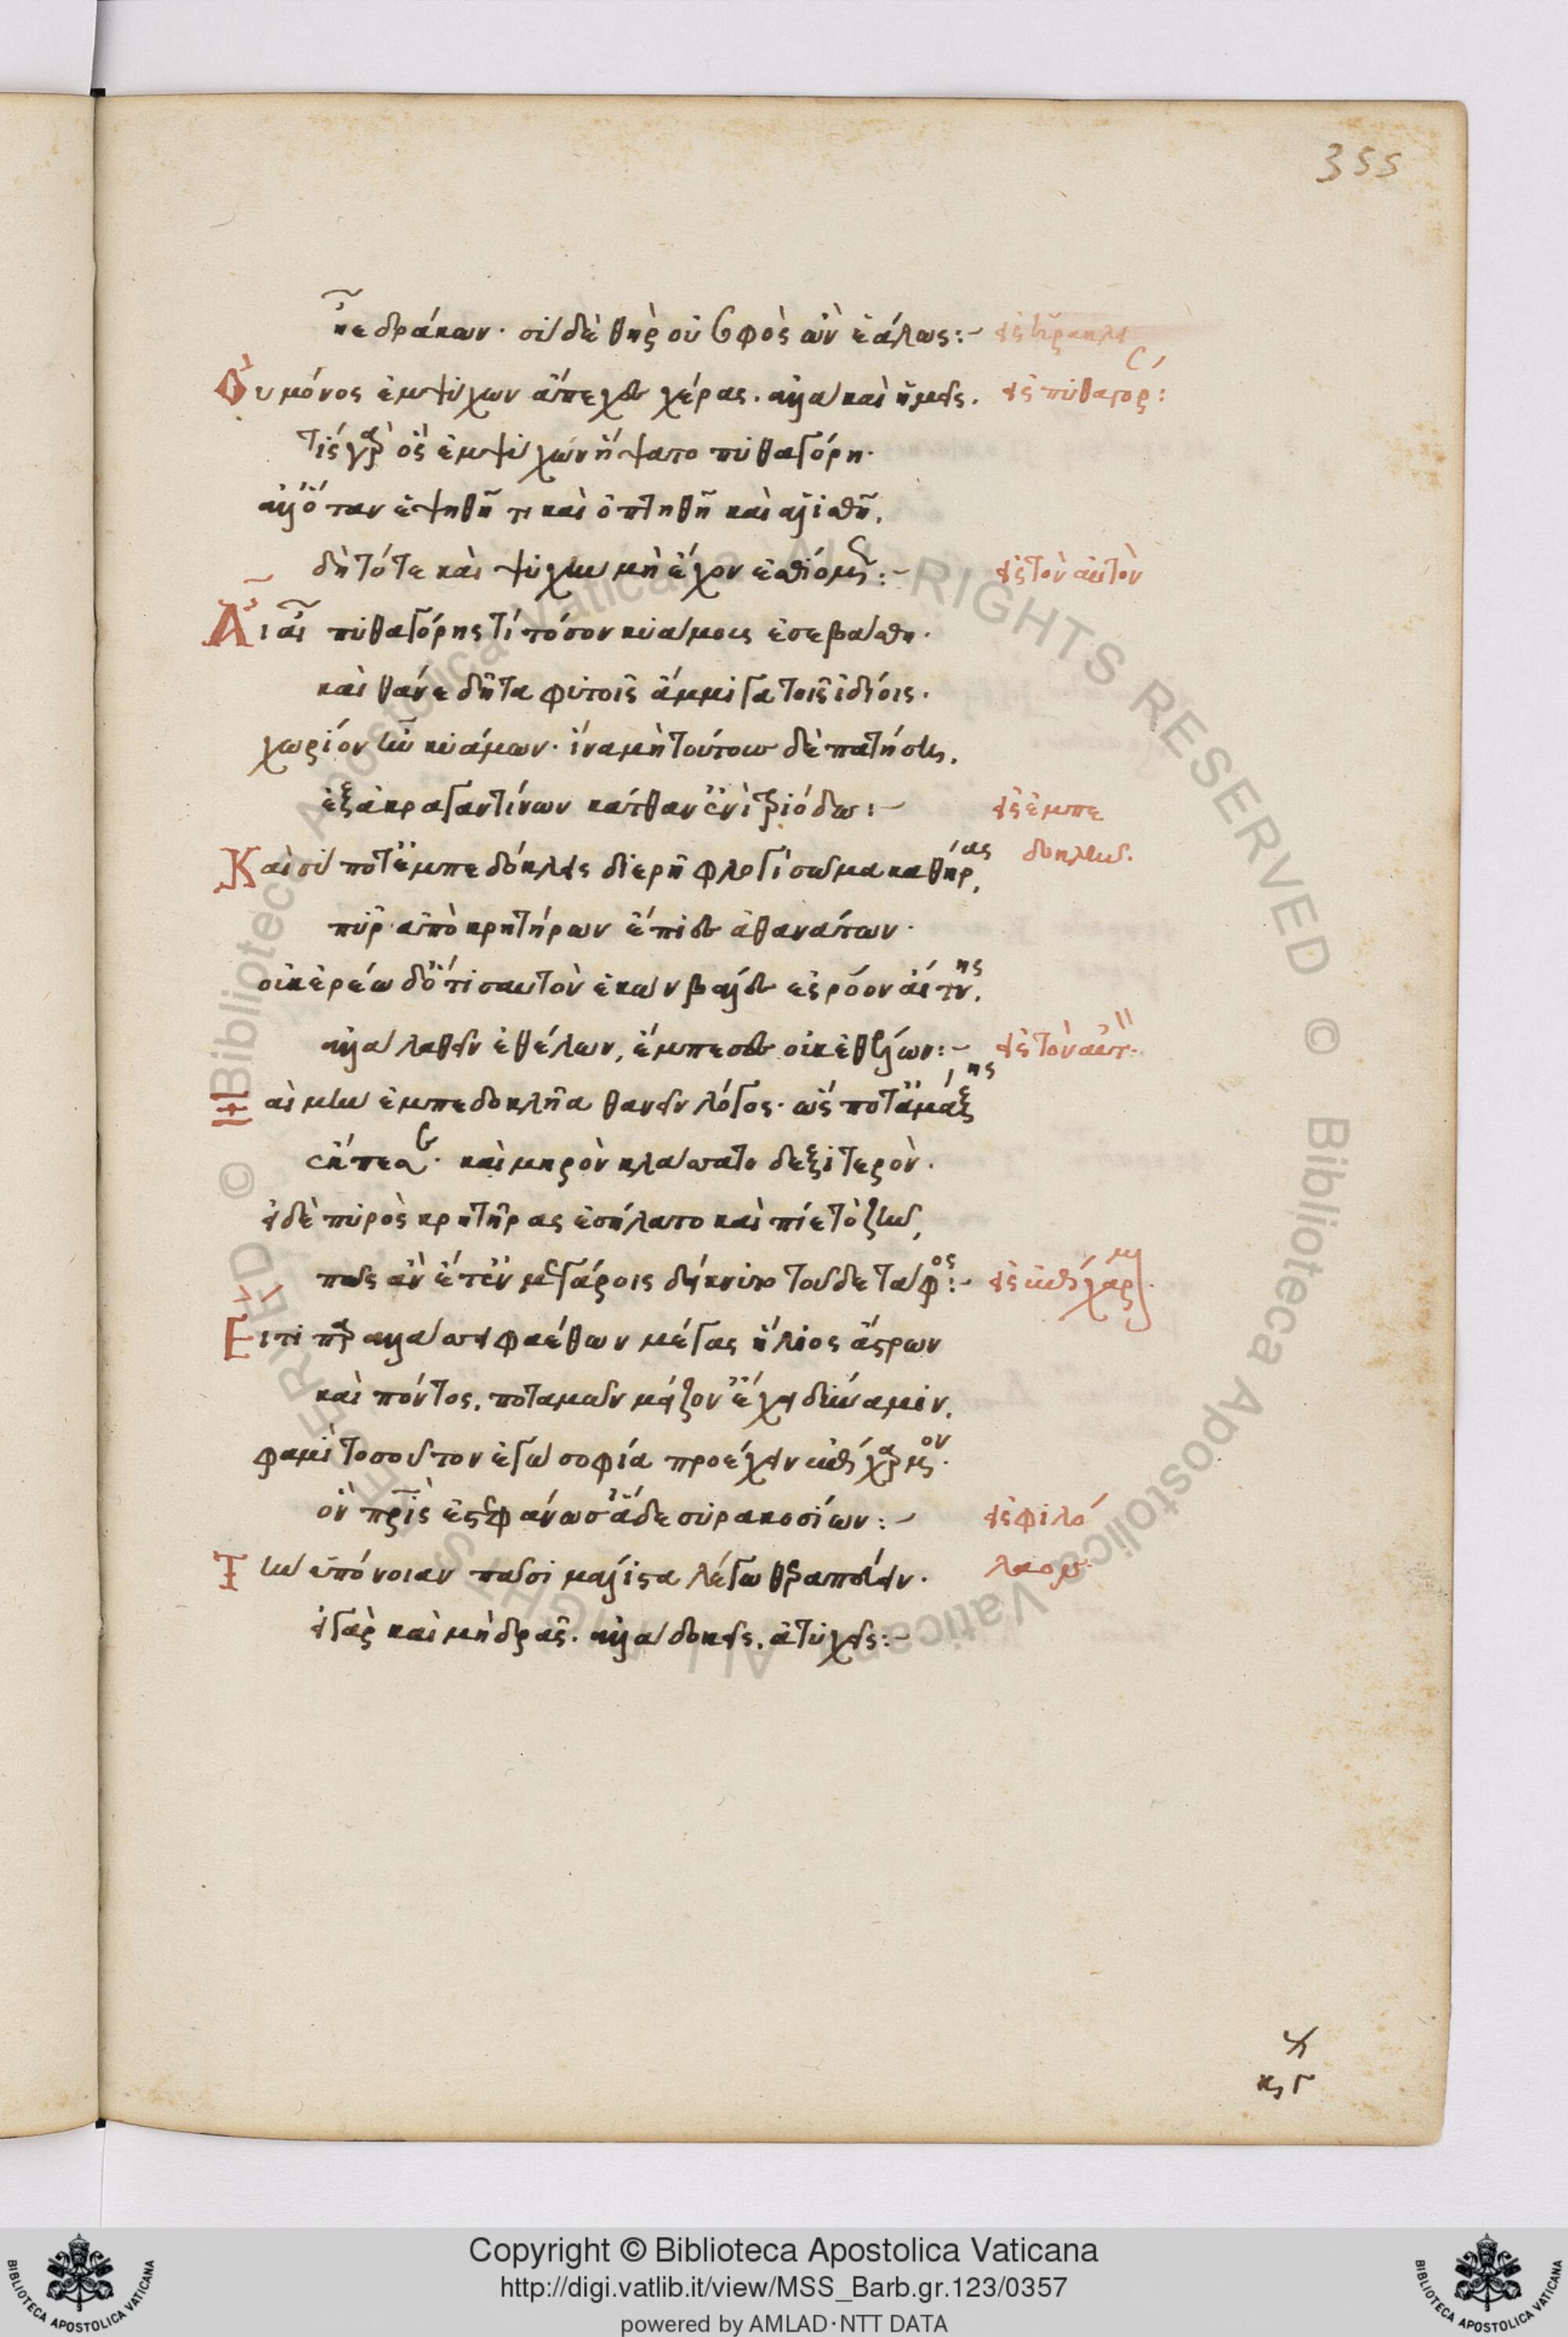 355
ἦκε δράκων· σὺ δὲ θὴρ οὐ σοφὸς ὢν ἑάλως:-
Οὐ μόνος ἐμψύχων ἄπεχες χέρας. ἀλλὰ καὶ ἡμεῖς. εἰς πυθαγόρ:
τίς γὰρ ὃς ἐμψύχων ἥψατο πυθαγόρη·
ἀλλ' ὅταν ἑψηθῆ τι καὶ ὀπτηθῆ καὶ ἁλισθῆ,
δὴ τότε καὶ ψυχὴν μὴ ἔχον ἐσθίομεν:- εἰς τὸν αὐτὸν
Αἶ αἶ πυθαγόρης τί τόσον κυάμους ἐσεβάσθη·
καὶ θάνε δῆτα φυτοῖς ἄμμιγα τοῖς ἰδίοις·
χωρίον ἦν κυάμων· ἵνα μὴ τούτους δὲ πατήση,
ἐξ ἀκραγαντίνων κάτθαν' ἐνὶ τριόδω:- εἰς ἐμπε
δοκλῆν·
Καὶ σύ ποτ' ἐμπεδόκλεις διερῆ φλογὶ σῶμα καθήρας,
πῦρ ἀπὸ κρητήρων ἔπιες ἀθανάτων·
οὐκ ἐρέω δ' ὅτι σαυτὸν ἑκὼν βάλες ἐς ῥόον αἴτνης,
ἀλλὰ λαθεῖν ἐθέλων, ἔμπεσες οὐκ ἐθέλων:- εἰς τὸν αὐτ·
Ναὶ μὴν ἐμπεδοκλῆα θανεῖν λόγος· ὥς ποτ' ἀμάξης
ἔκπεσε· καὶ μηρὸν κλάσσατο δεξιτερὸν·
εἰ δὲ πυρὸς κρητῆρας ἐσήλατο καὶ πίε τὸ ζῆν,
πῶς ἂν ἔτ' ἐν μεγάροις δείκνυτο τοῦδε τάφος:- εἰς ἐπίχαρμ·
Εἴ τι παραλλάσσει φαέθων μέγας ἥλιος ἄστρων
καὶ πόντος, ποταμῶν μείζον' ἔχει δύναμιν,
φαμὶ τοσοῦτον ἐγὼ σοφία προέχειν ἐπίχαρμον·
ὃν πατρὶς ἐστεφάνωσ' ἅδε συρακοσίων:- εἰς φιλό
λαον·
Τὴν ὑπόνοιαν πᾶσι μάλιστα λέγω θεραπεύειν·
εἰ γὰρ καὶ μὴ δρᾶς. ἀλλὰ δοκεῖς, ἀτυχεῖς:-
Copyright © Biblioteca Apostolica Vaticana
http://digi.vatlib.it/view/MSS_Barb.gr.123/0357
powered by AMLAD·NTT DATA